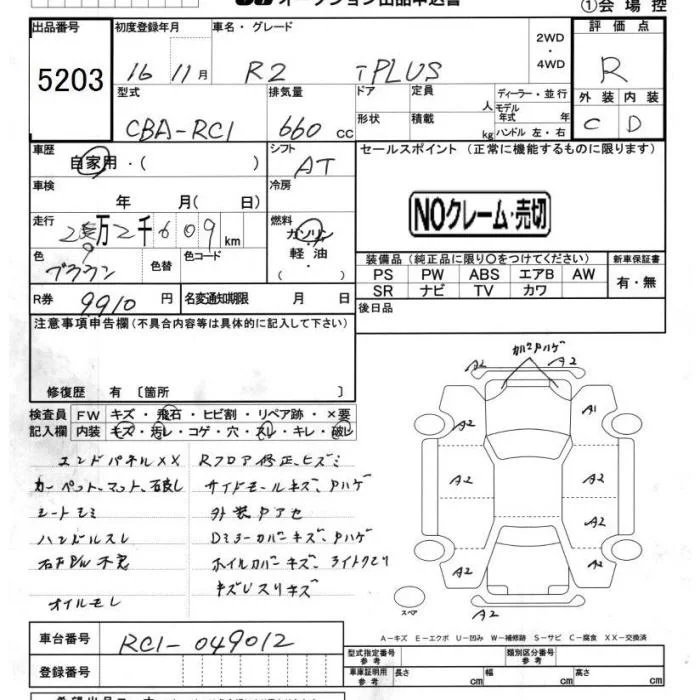 オークション出品申込書
①会場控
出品番号 5203
初度登録年月 16 11月
車名・グレード R2 iPLUS
2WD・4WD
評価点 R
外装 C 内装 D
型式 CBA-RC1
排気量 660 CC
ドア 形状
定員 人
積載 kg
ディーラー・並行
モデル年式 年
ハンドル 左・右
車歴 自家用・( )
シフト AT
セールスポイント (正常に機能するものに限ります)
NOクレーム・売切
車検 年 月( 日)
冷房
走行 万2千609km
燃料 ガソリン・軽油
色 ブラウン
色替
色コード
装備品 (純正品に限り〇をつけてください)
新車保証書 有・無
PS PW ABS エアB AW
SR ナビ TV カワ
R券 9910 円
名変通知期限 月 日
後日品
注意事項申告欄 (不具合内容等は具体的に記入して下さい)
修復歴 有 〔箇所 〕
検査員記入欄
FW キズ・飛石・ヒビ割・リペア跡・×要
内装 キズ・汚レ・コゲ・穴・スレ・キレ・破レ
エンドパネルXX Rフロア修正、ヒズミ
カーペット、マット、石良し サイドモールキズ、Pハゲ
シートモミ 外装Pアセ
ハンドルスレ Dミラーカバーキズ、Pハゲ
不良 ホイルカバーキズ、ライトクモリ
キズUスリキズ
オイルモレ
A2 A2
A2 A1
A2 A2
A2
A2 A2
A2
スペア
A-キズ E-エクボ U-凹み W-補修跡 S-サビ C-腐食 XX-交換済
車台番号 RC1-049012
登録番号
型式指定番号 参考
類別区分番号 参考
車庫証明用 参考 長さ cm 幅 cm 高さ cm